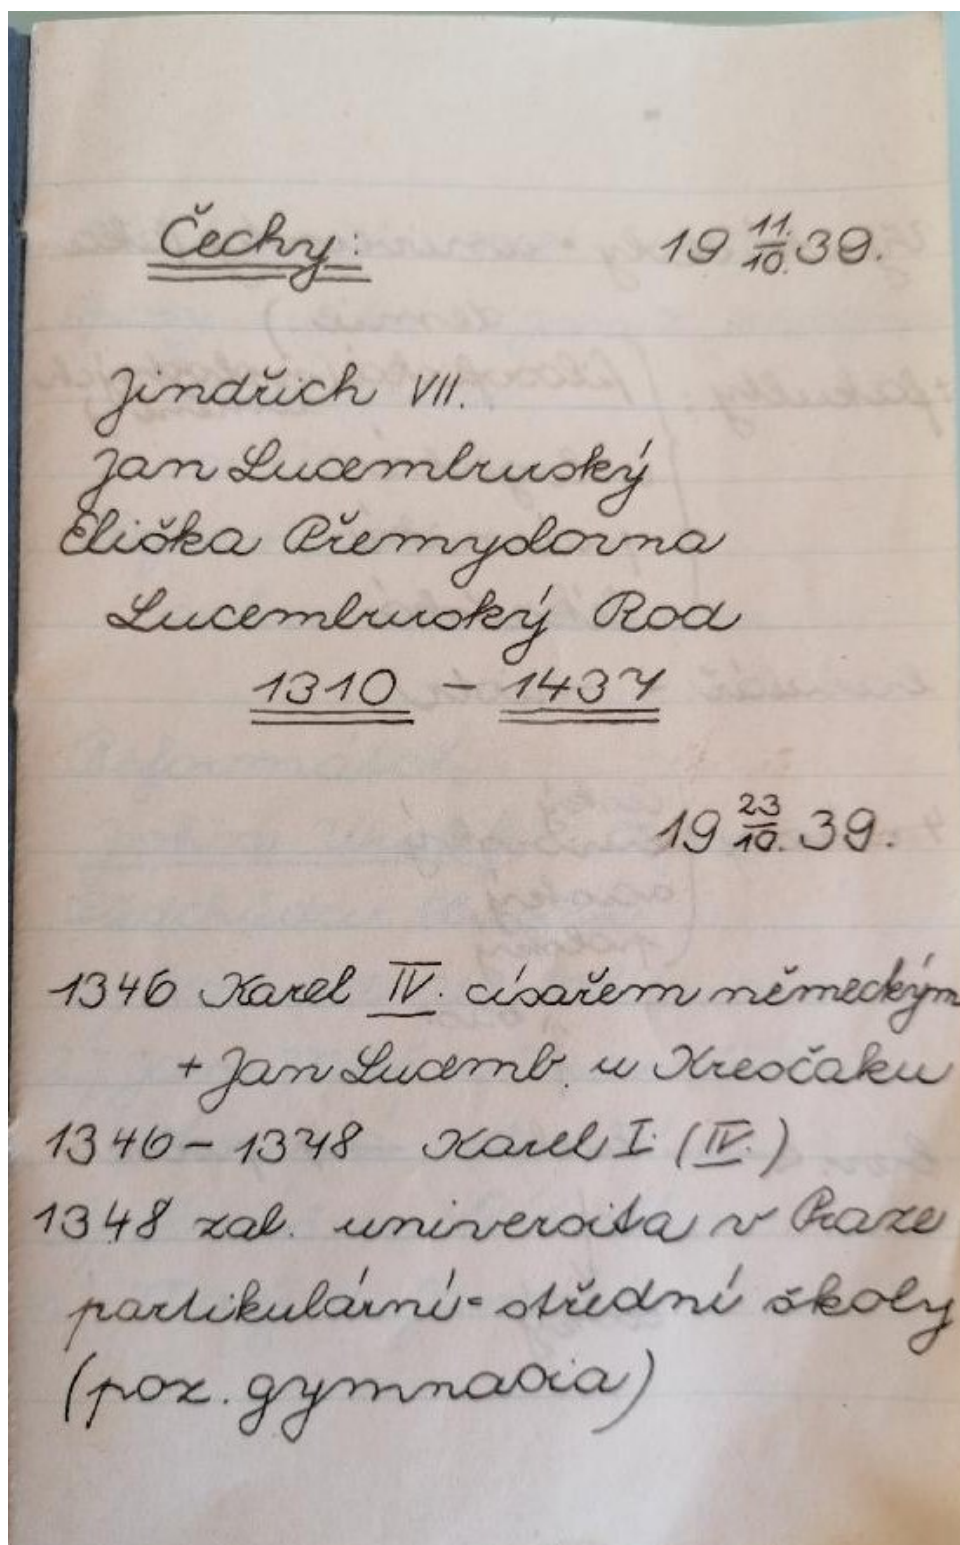 Čechy: 19 11./10. 39.
Jindřich VII.
Jan Lucémbruský
Eliška Přemydovna
Lucembruský Rod
1310 - 1437
19 23/10. 39.
1346 Karel IV. císařem německým
+ Jan Lucemb. u Kresčaku
1346 - 1348 Karel I. (IV.)
1348 zal. universita v Praze
partikulární = střední školy
(poz. gymnasia)